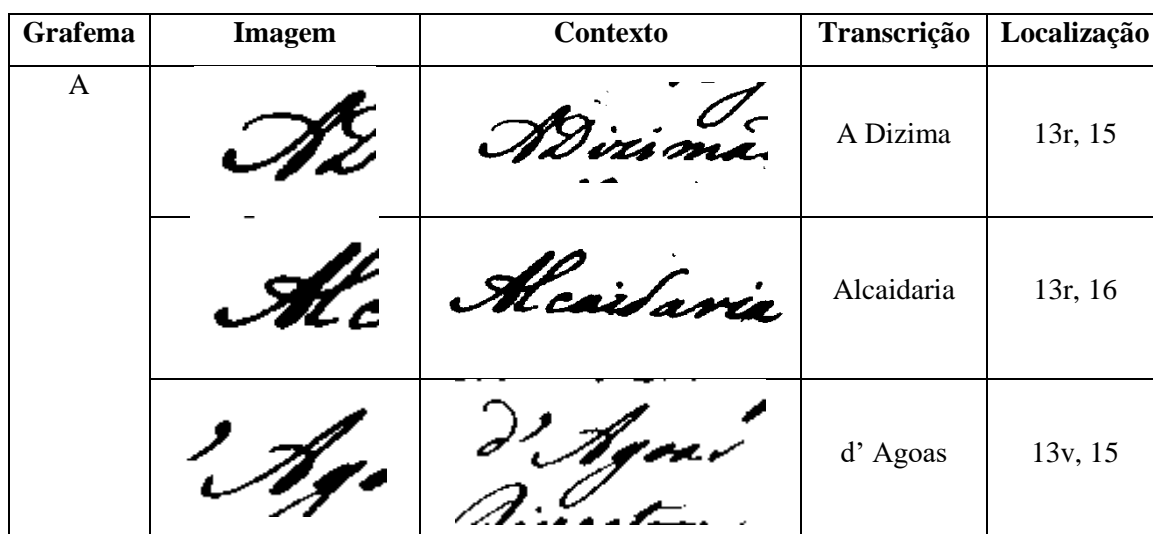 Grafema Imagem Contexto Transcrição Localização
A AD ADizimã. A Dizima 13r, 15
Alc Alcaidaria Alcaidaria 13r, 16
’Ago d’Agoas d’ Agoas 13v, 15